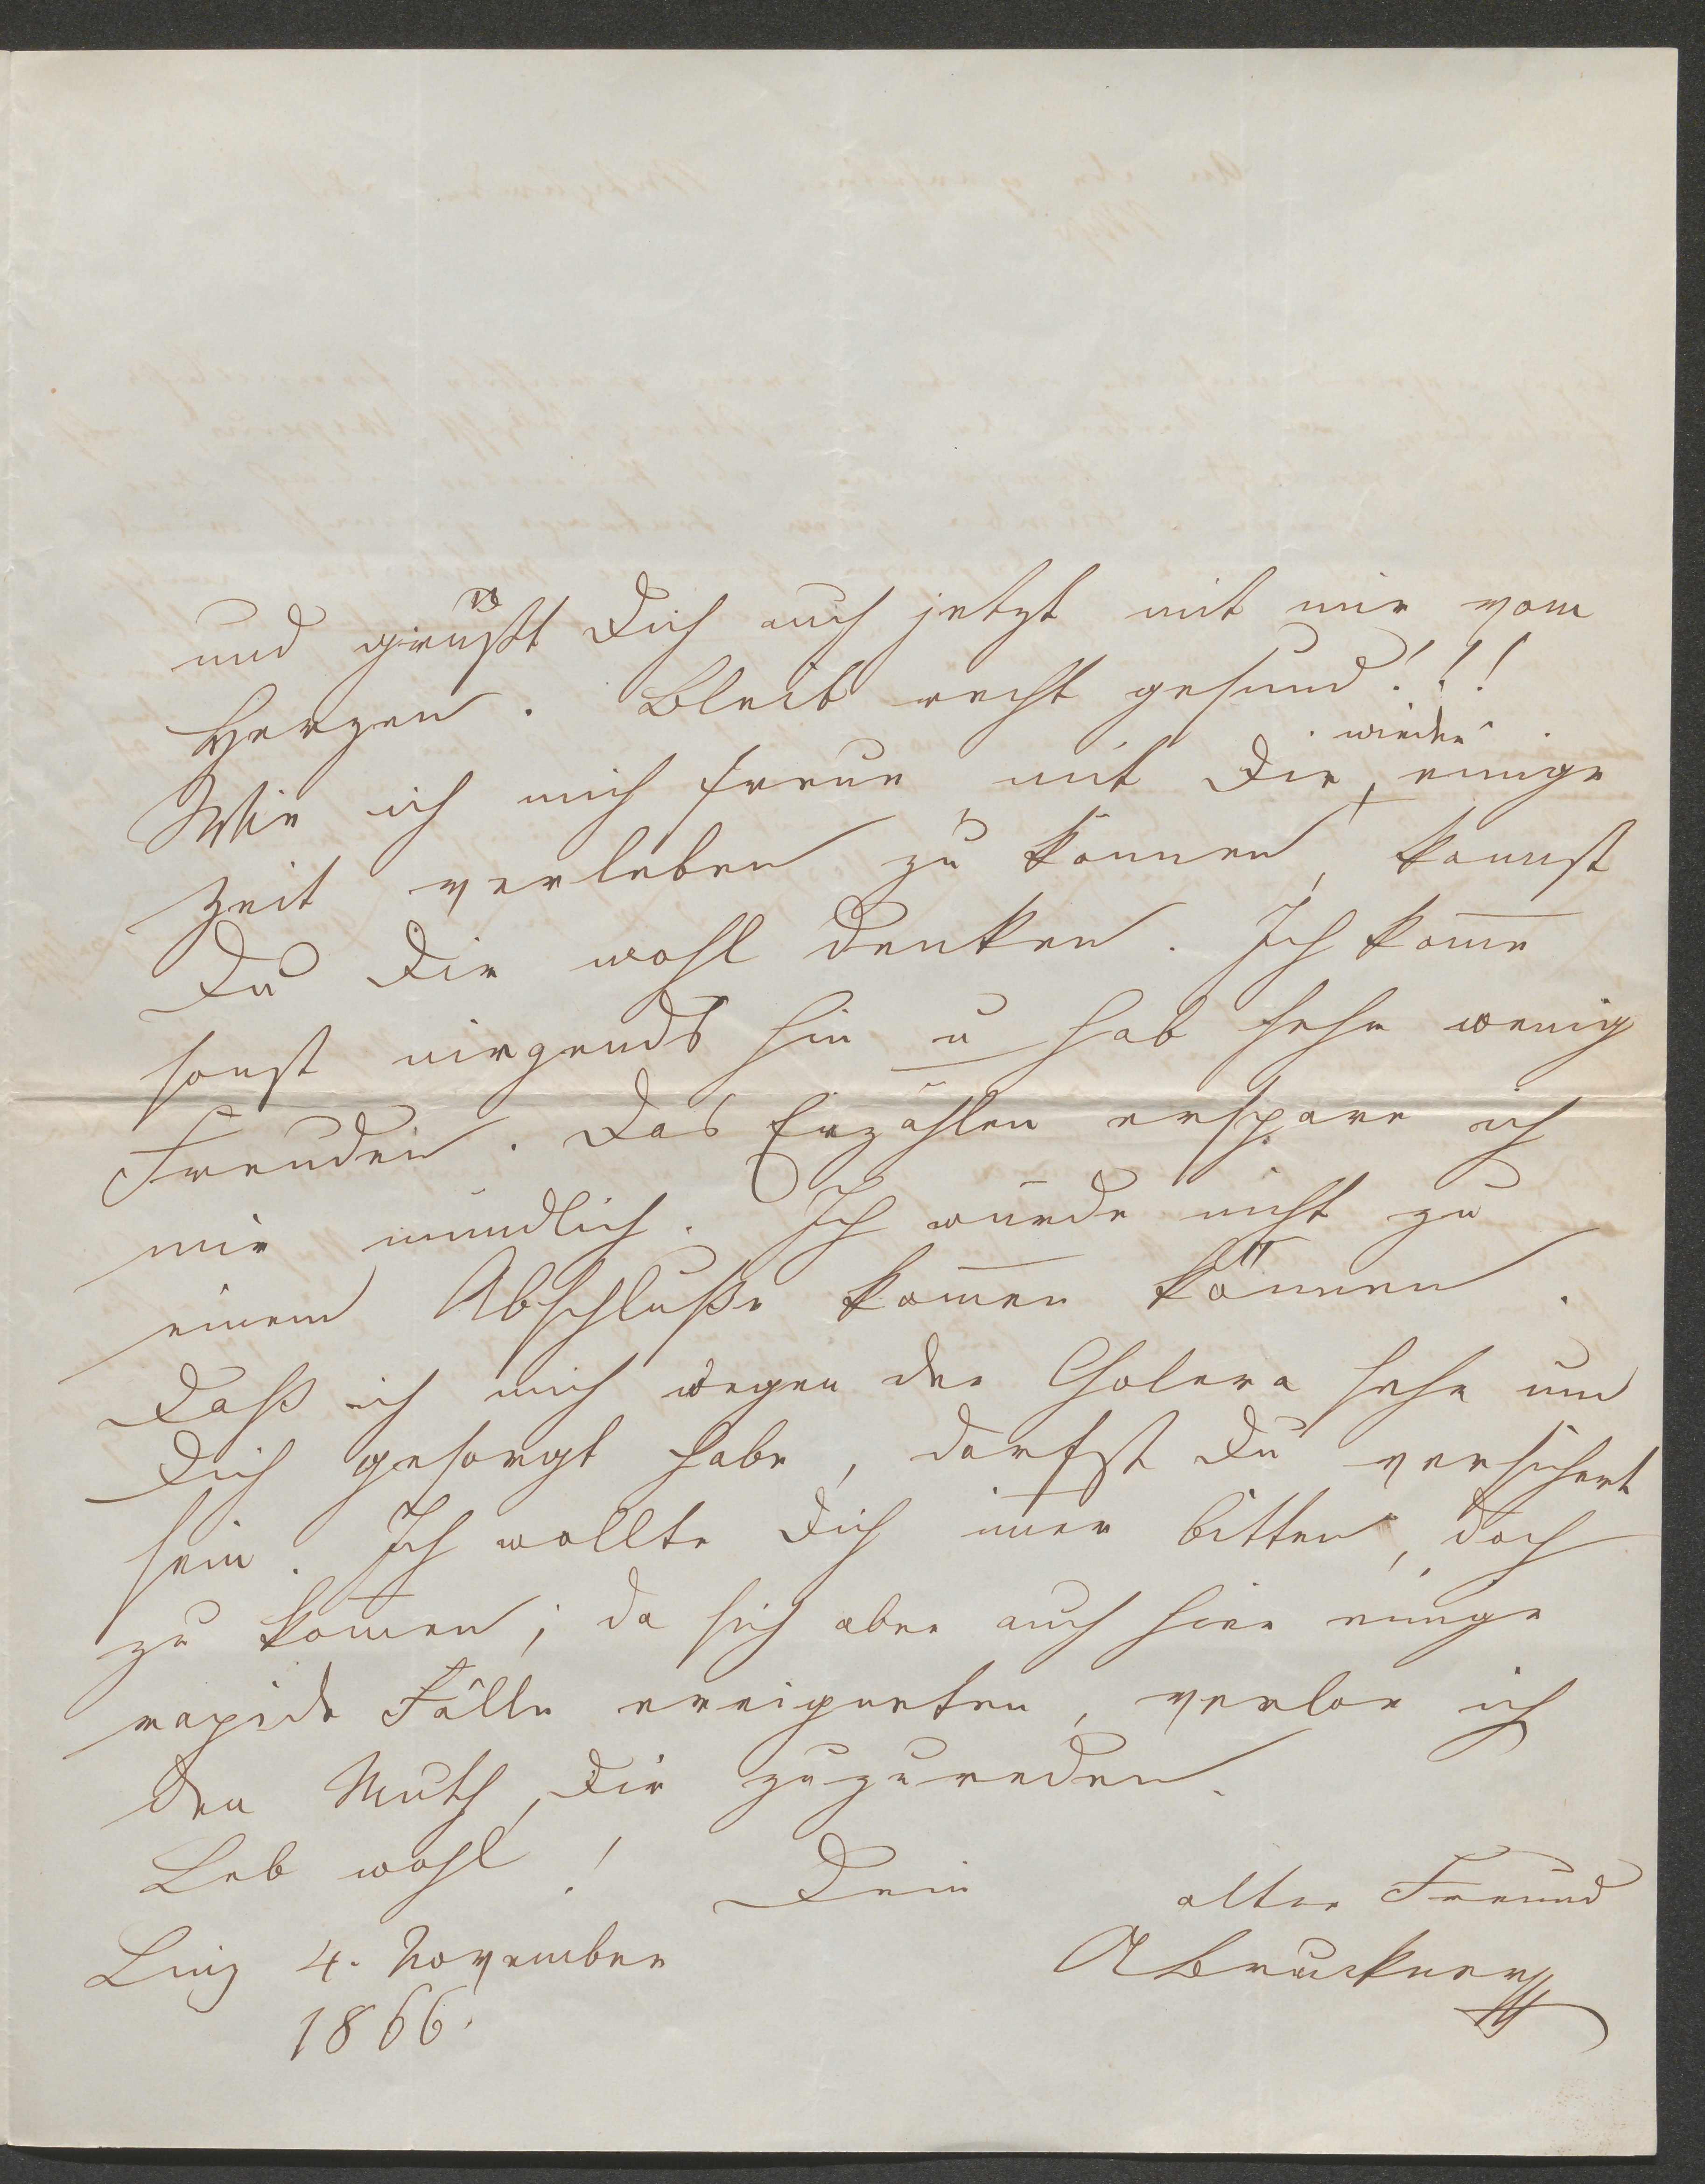 und grüßt Dich auch jetzt mit mir vom
Herzen. Bleib recht gesund!!!
wieder
Wie ich mich freue mit Dir, einige
Zeit verleben zu können, kannst
Du Dir wohl denken. Ich kom̅e
sonst nirgends hin u hab sehr wenig
Freuden. Das Erzählen erspare ich
mir mündlich. Ich würde nicht zu
einem Abschluße kom̅en können.
Daß ich mich wegen der Cholera sehr um
Dich gesorgt habe, darfst Du versichert
sein. Ich wollte Dich im̅er bitten, doch
zu kom̅en; da sich aber auch hier einige
rapide Fälle ereigneten, verlor ich
den Muth, Dir zuzureden.
Leb wohl! Dein alter Freund
Linz 4. November ABruckner
1866.